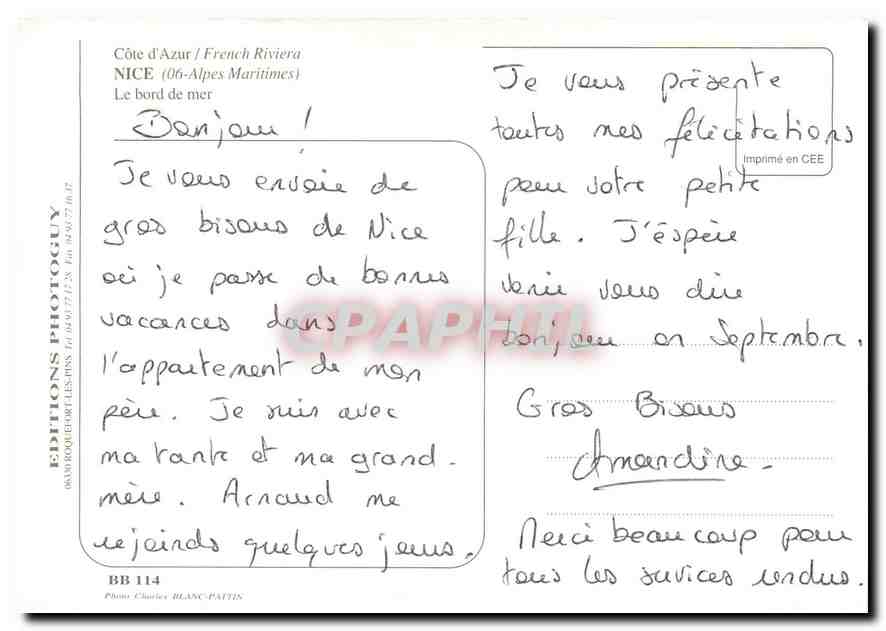 Côte d'Azur / French Riviera
NICE (06-Alpes Maritimes)
Le bord de mer
Bonjour !
Je vous envoie de
gros bisous de Nice
où je passe de bonnes
vacances dans
l'appartement de mon
père. Je suis avec
ma tante et ma grand-
mère. Arnaud me
rejoinds quelques jours.
Je vous présente
toutes mes félicitations
pour votre petite
fille. J'éspère
venir vous dire
bonjour en Septembre.
Gros Bisous
Amandine.
Merci beaucoup pour
tous les services rendus.
Imprimé en CEE
EDITIONS PHOTOGUY
06330 ROQUEFORT-LES-PINS Tél 04 93 77 17 28 Fax 04 93 77 16 37
BB 114
Photo Charles BLANC-PATTIN
CPAPHIL